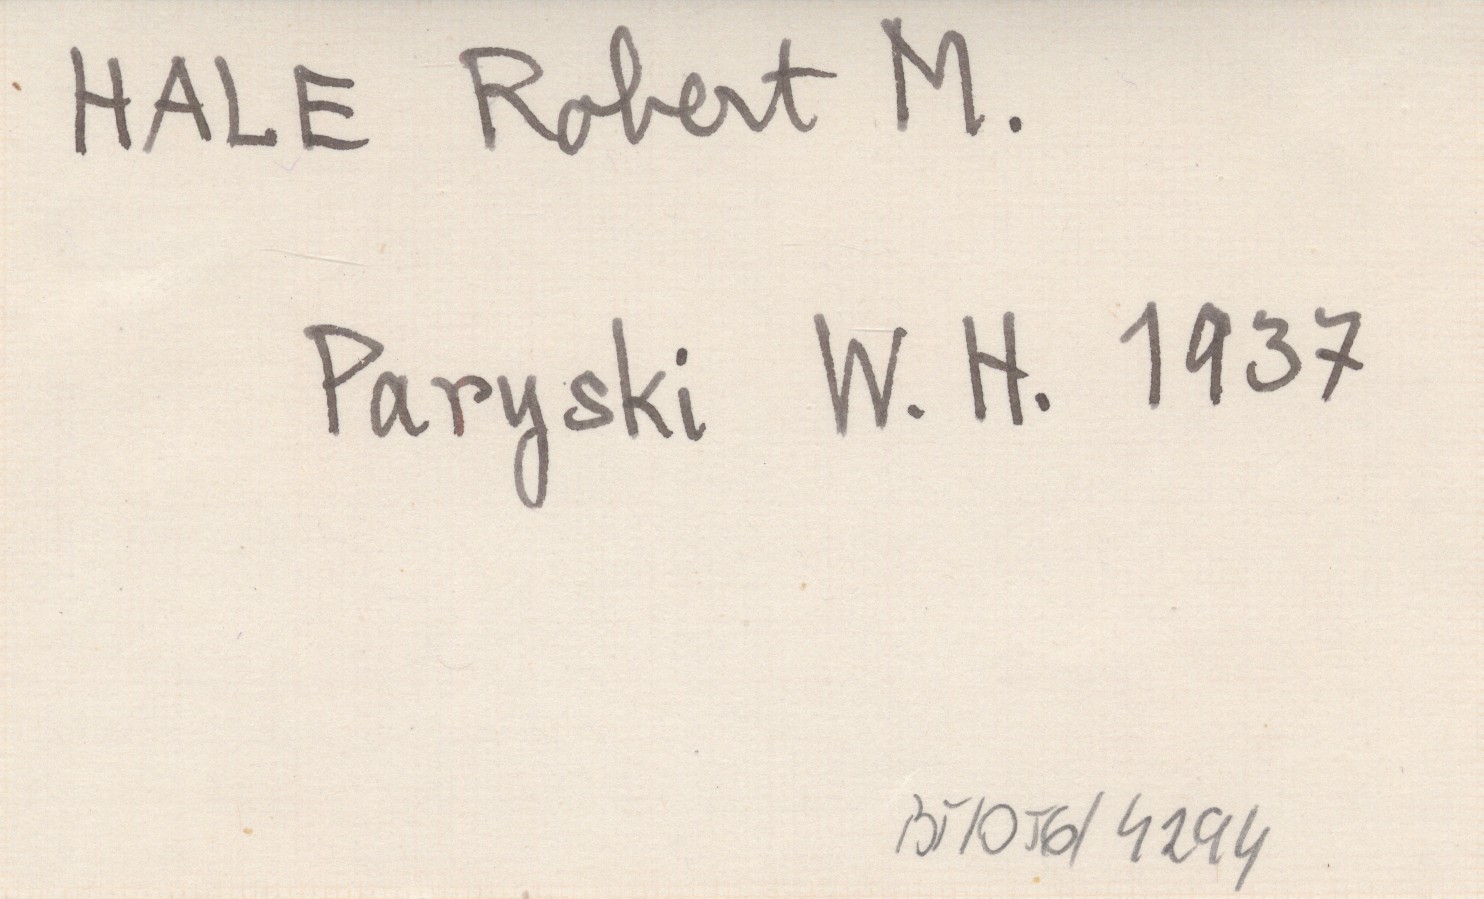 HALE Robert M.
Paryski W. H. 1937
4294